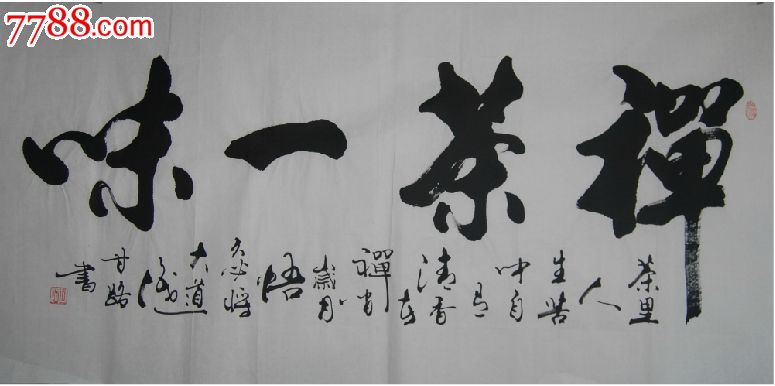 7788.com
禪茶一味
茶里
人
生苦
中自
有
清香
在
禪
歲月
悟
大道
甘路
書